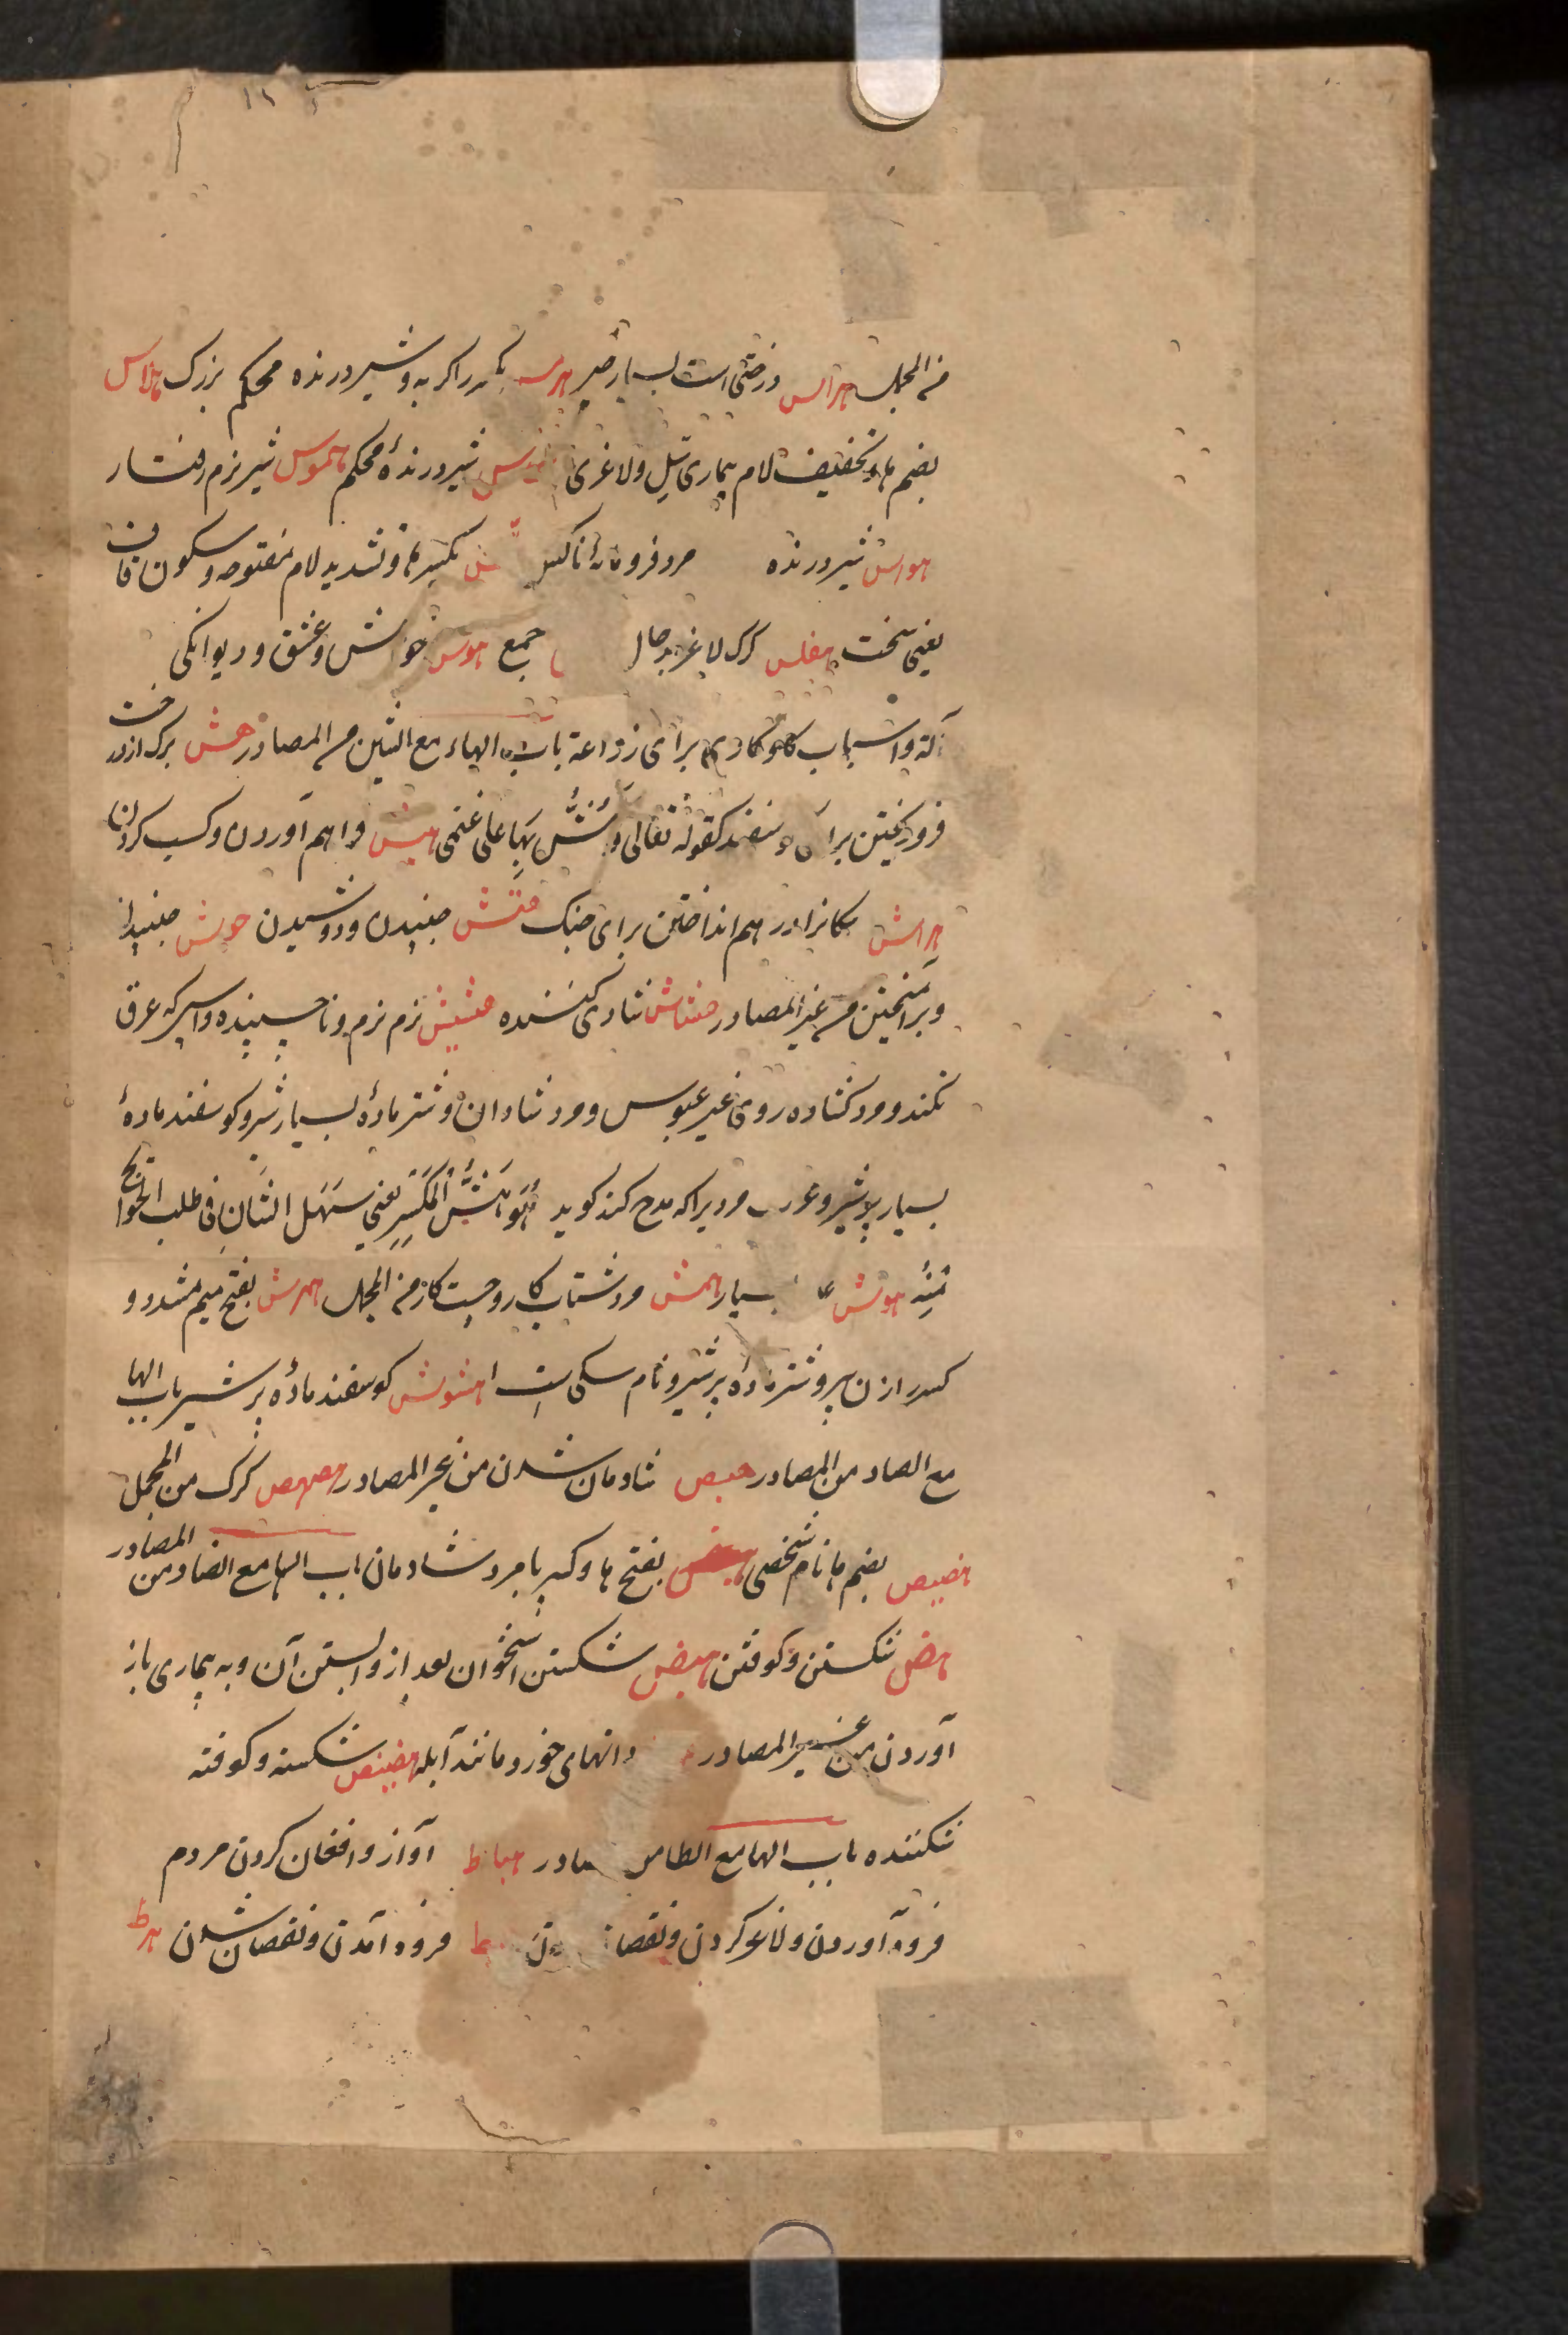 من المجمل هراس درختی است بسیار هرس گربه و شیر درنده محکم بزرگ هلاس
بضم ها و تخفیف لام بیماری سل و لاغری شیر درندهٔ محکم هموس شیر نرم رفتار
هواس شیر درنده مرد فرومایه بکسر ها و تشدید لام مفتوحه و سکون قاف
یعنی سخت هقلس گرگ لاغر بدحال جمع هوس خواهش و عشق و دیوانگی
آلة و اسباب برای زراعة باب الهاء مع الشین من المصادر هش برگ از درخت
فرو ریختن برای گوسفند کقوله تعالی وَأَهُشُّ بِهَا عَلَى غَنَمِي هبش فراهم آوردن و کسب کردن
هراش سگانرا در هم انداختن برای جنگ هتش جنبیدن و دوشیدن هوش جنبیدن
و برانگیختن من غیر المصادر هشاش شادی کننده هشیش نرم نرم و ناچسپنده و اسپ که عرق
نکند و مرد گشاده روی غیر عبوس و مرد شادان و شتر مادهٔ بسیار شیر و گوسفند مادهٔ
بسیار پر شیر و عرب مردیرا که مدح کند گوید هُوَ هَشُّ الْمَكْسِرِ یعنی سهل الشان فی طلب الحوائج
هوش بسیار همش مرد شتاب کار و چست کار من المجمل همرش بفتح میم مشدد و
زن پیر و شتر ماده پر شیر و نام سگی است هشوش گوسفند مادهٔ پر شیر باب الها
مع الصاد من المصادر هبص شادمان شدن من غیر المصادر هصهص گرگ من المجمل
هصیص بضم ها نام شخصی هبص بفتح ها و کسر با مرد شادمان باب الها مع الضاد من المصادر
هض شکستن و کوفتن هیض شکستن استخوان بعد از وا بستن آن و به بیماری باز
آوردن من غیر المصادر دانهای خورد مانند آبله هضیض شکسته و کوفته
شکننده باب الها مع الطا من المصادر هیاط آواز و افغان کردن مردم
فرود آوردن و لاغر کردن و نقصان فرود آمدن و نقصان شدن هرط